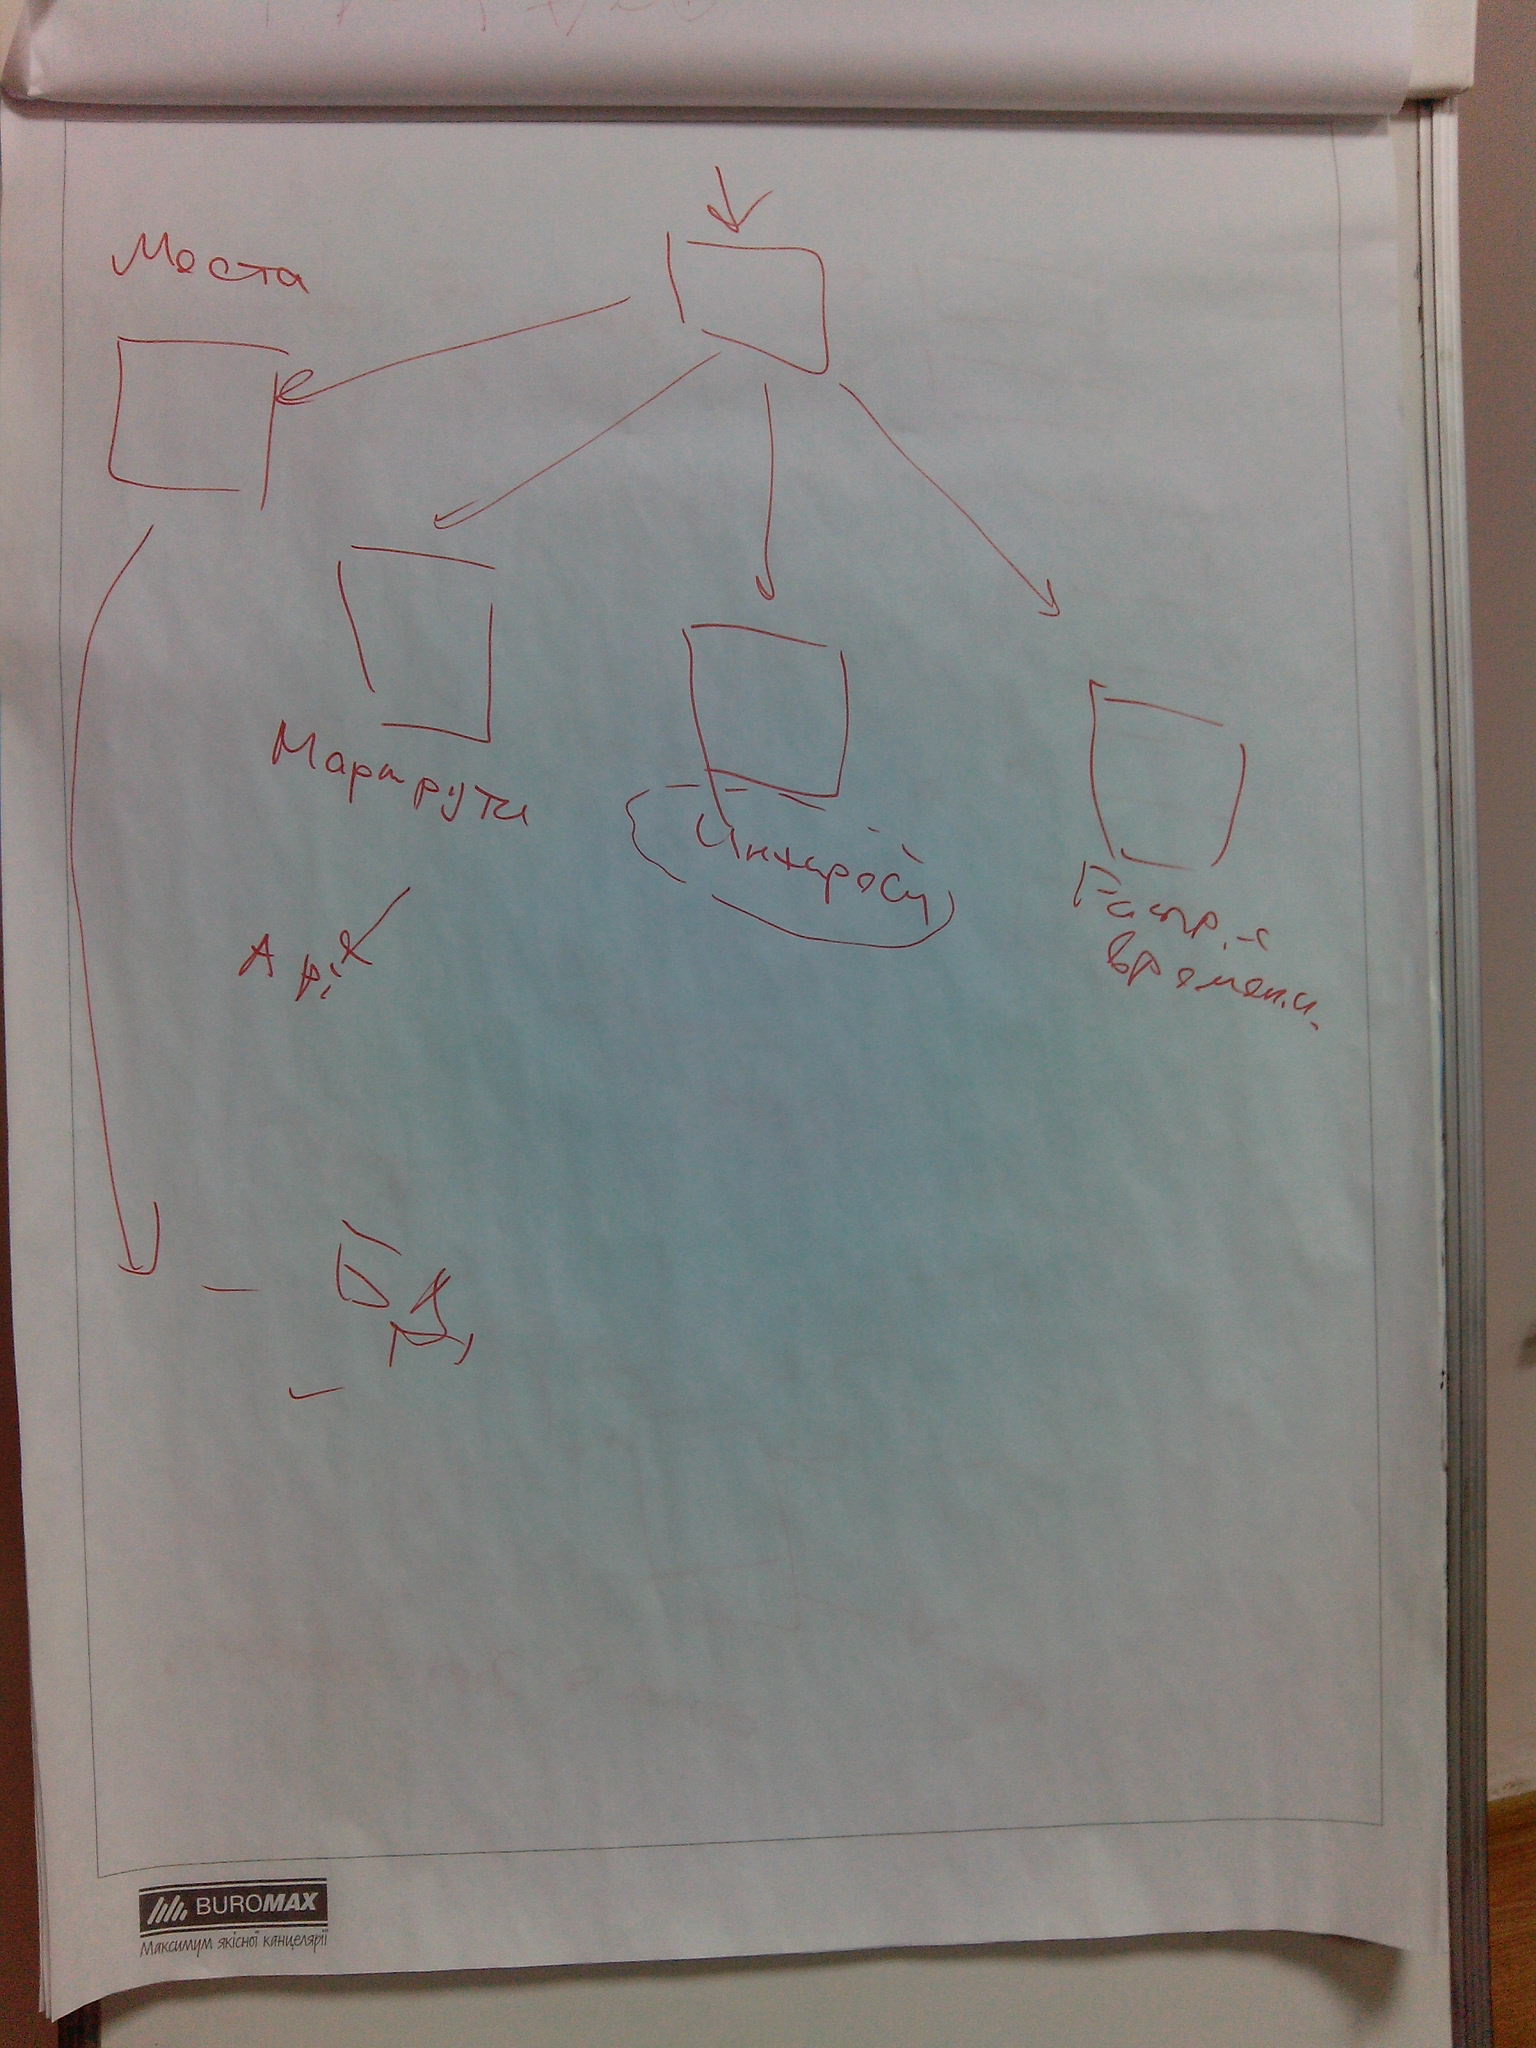 Места
Маршруты
Интересы
Распр.-я
времени.
Api
БД
BUROMAX
Максимум якісної канцелярії